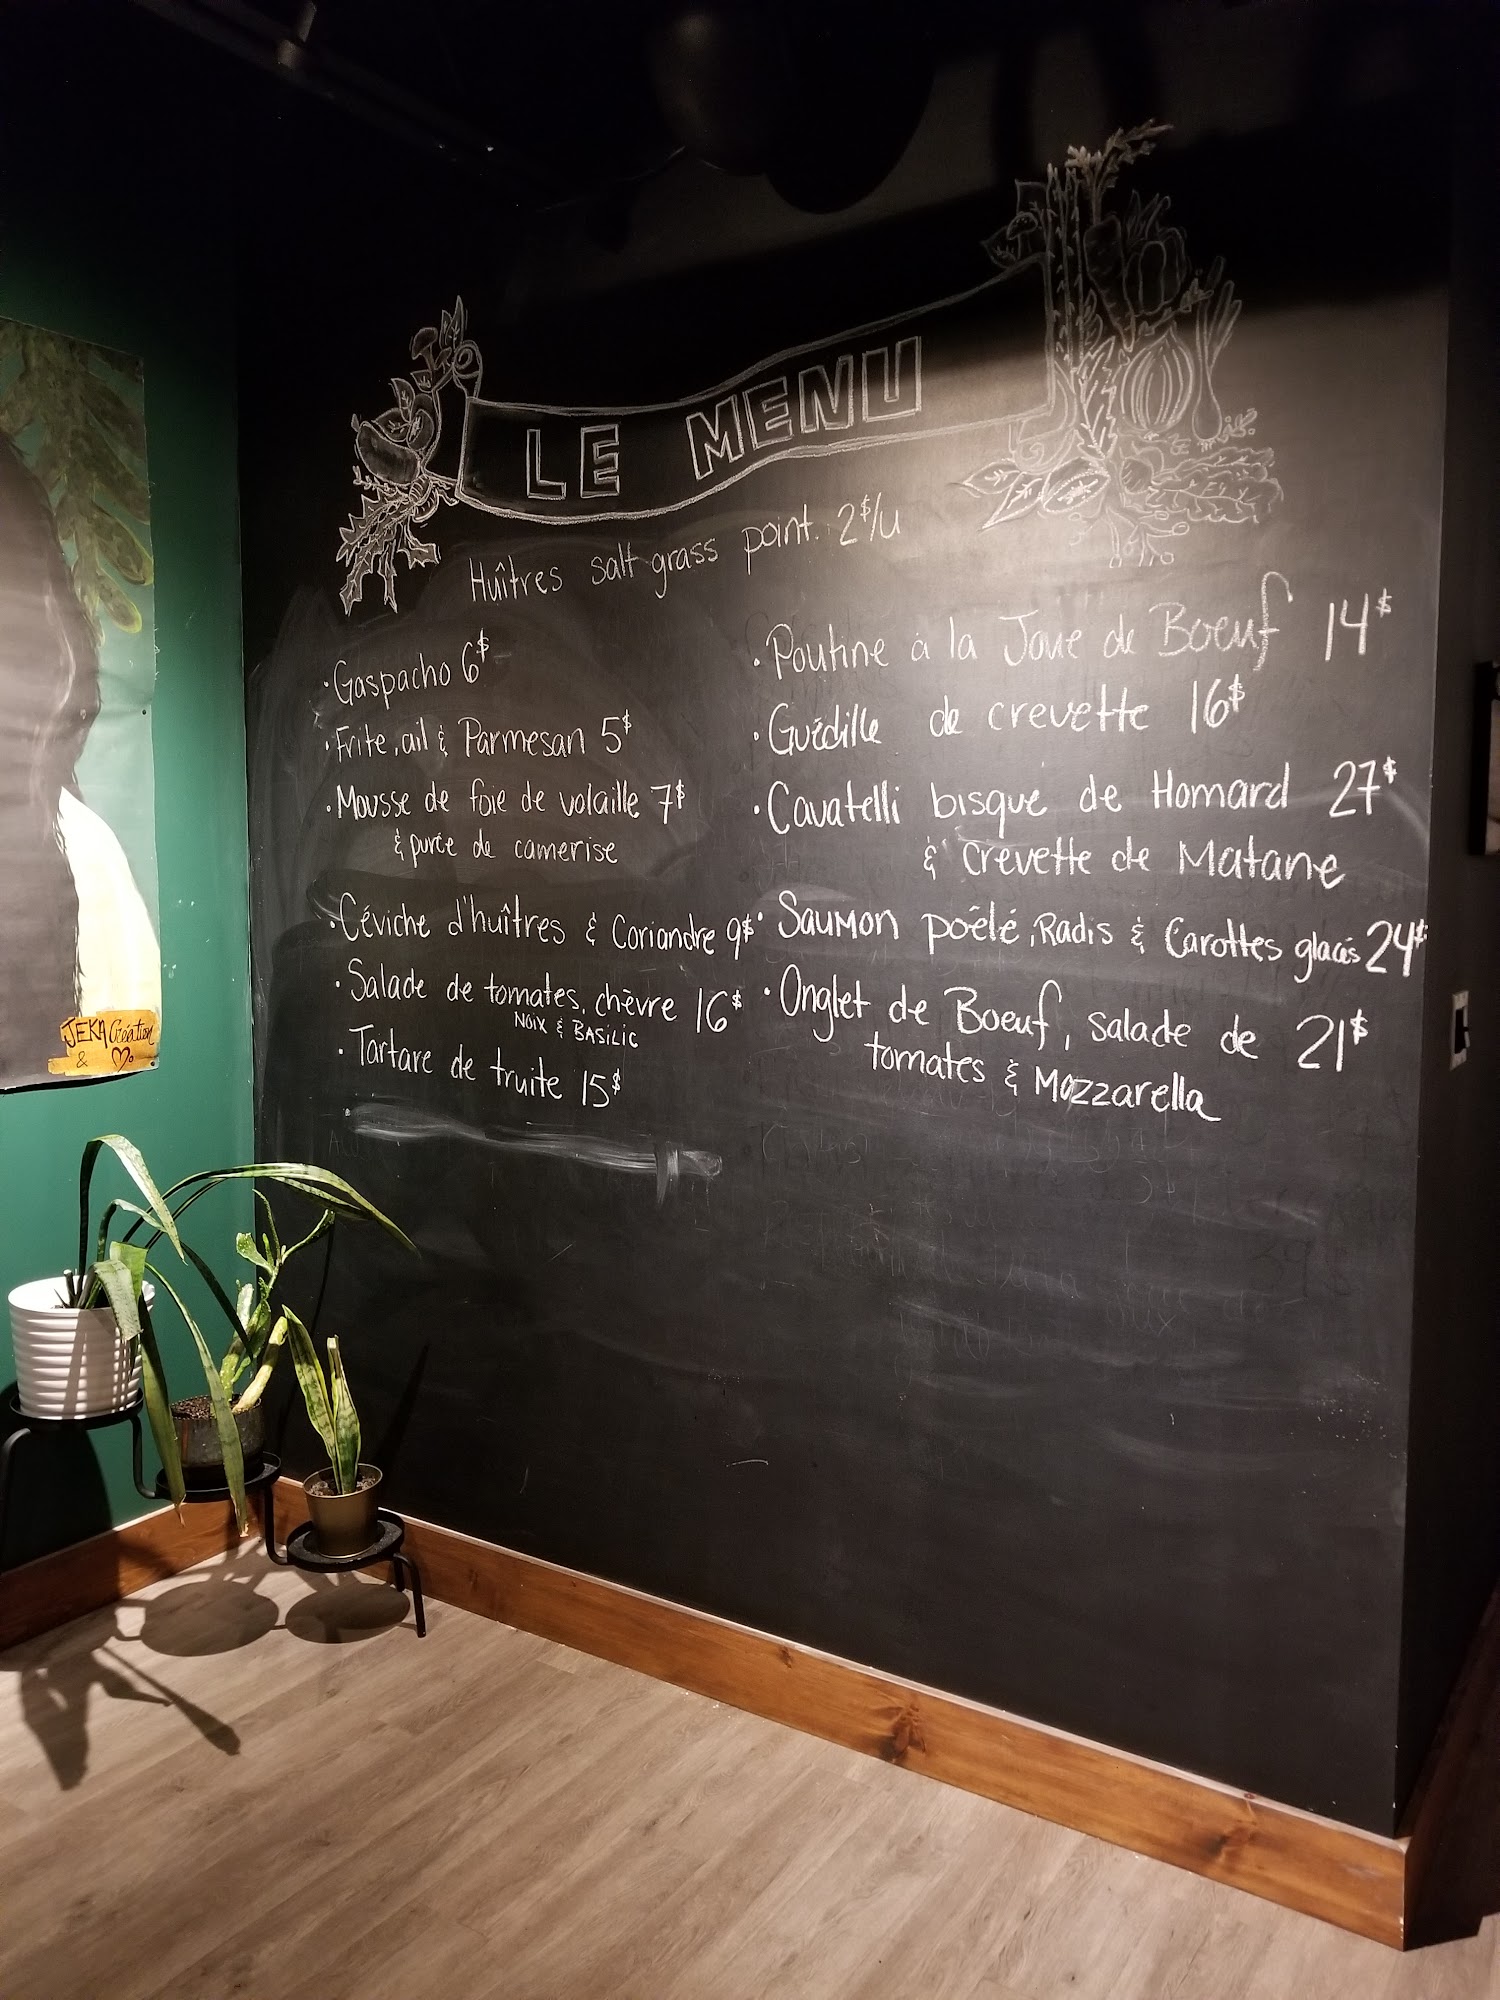 LE MENU
Huîtres salt grass point. 2$/u
· Gaspacho 6$
· Frite, ail & Parmesan 5$
· Mousse de foie de volaille 7$
& purée de camerise
· Céviche d'huîtres & Coriandre 9$
· Salade de tomates, chèvre 16$
NOIX & BASILIC
· Tartare de truite 15$
· Poutine à la Joue de Boeuf 14$
· Guédille de crevette 16$
· Cavatelli bisque de Homard 27$
& crevette de Matane
· Saumon poêlé, Radis & Carottes glacés 24$
· Onglet de Boeuf, salade de 21$
tomates & Mozzarella
JEKA Création
&